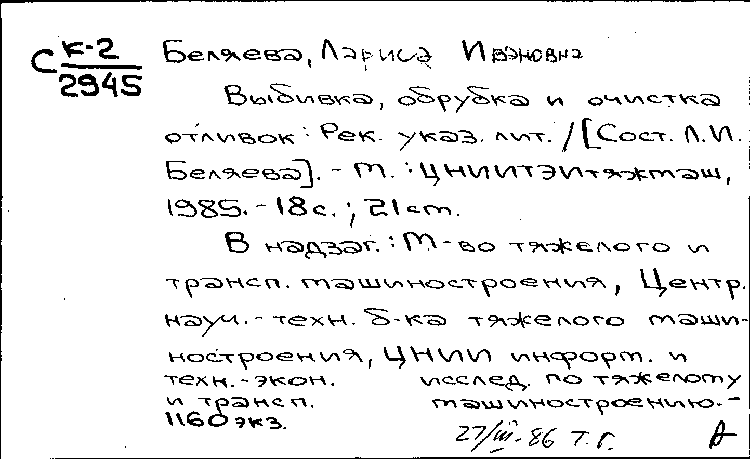 С К-2
2945
Беляева, Лариса Ивановна
Выбивка, обрубка и очистка
отливок : Рек. указ. лит. / [Сост. Л.И.
Беляева]. - М. : ЦНИИТЭИтяжмаш,
1985. - 18 с. ; 21 см.
В надзаг. : М-во тяжелого и
трансп. машиностроения, Центр.
науч.-техн. б-ка тяжелого маши-
ностроения, ЦНИИ информ. и
техн.-экон. исслед. по тяжелому
и трансп. машиностроению. -
1160 экз.
27/III-86 Т.Г. А